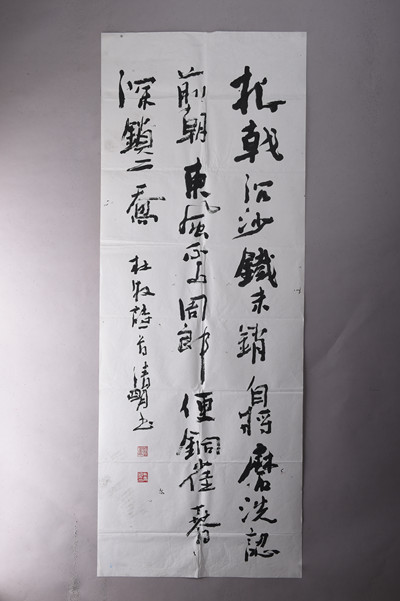 折戟沉沙鐵未銷自將磨洗認
前朝東風不与周郎便銅雀春
深鎖二喬
杜牧詩一首清明书